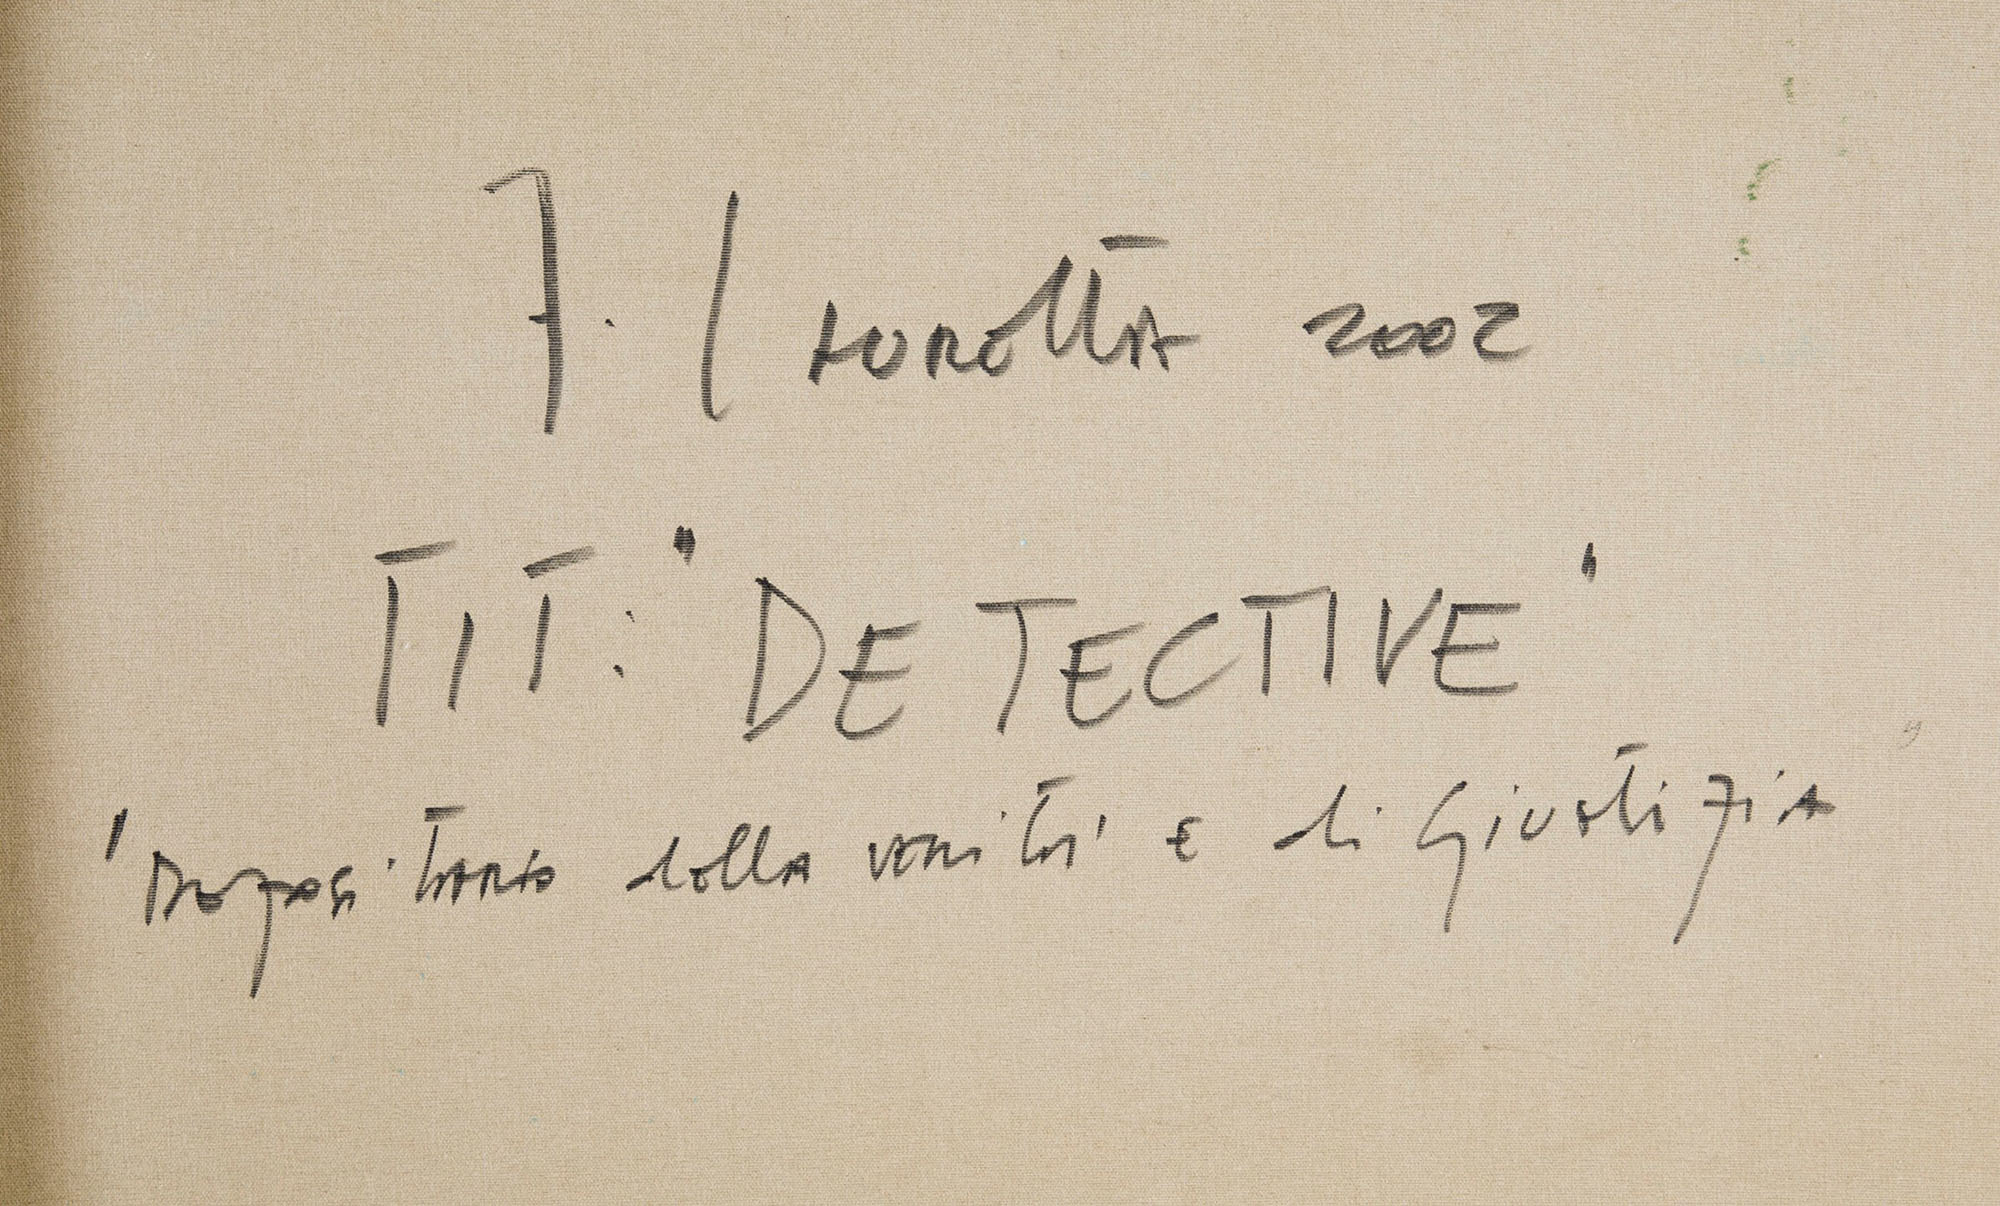 F. Lauretta 2002
TIT: "DETECTIVE"
"Depositario della verità e di Giustizia"